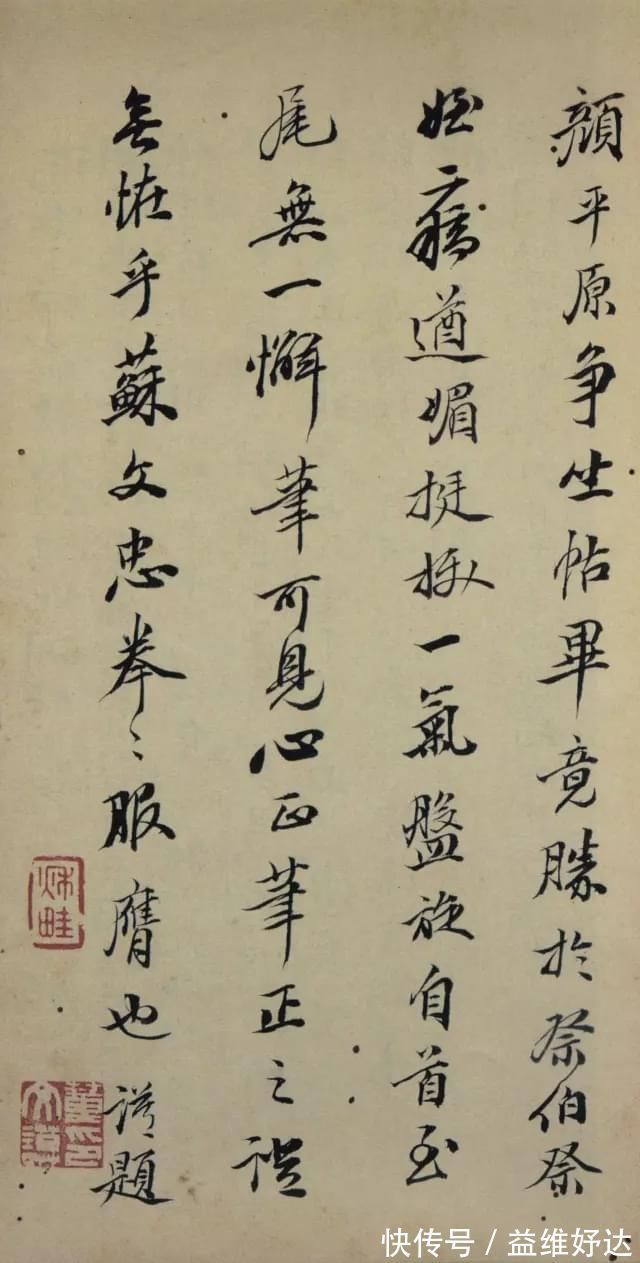 顏平原争坐帖畢竟勝於祭伯祭
姪二稿遒媚挺拔一氣盤旋自首至
尾無一懈筆可見心正筆正之説
無恠乎蘇文忠拳〻服膺也 題
快传号／益维妤达